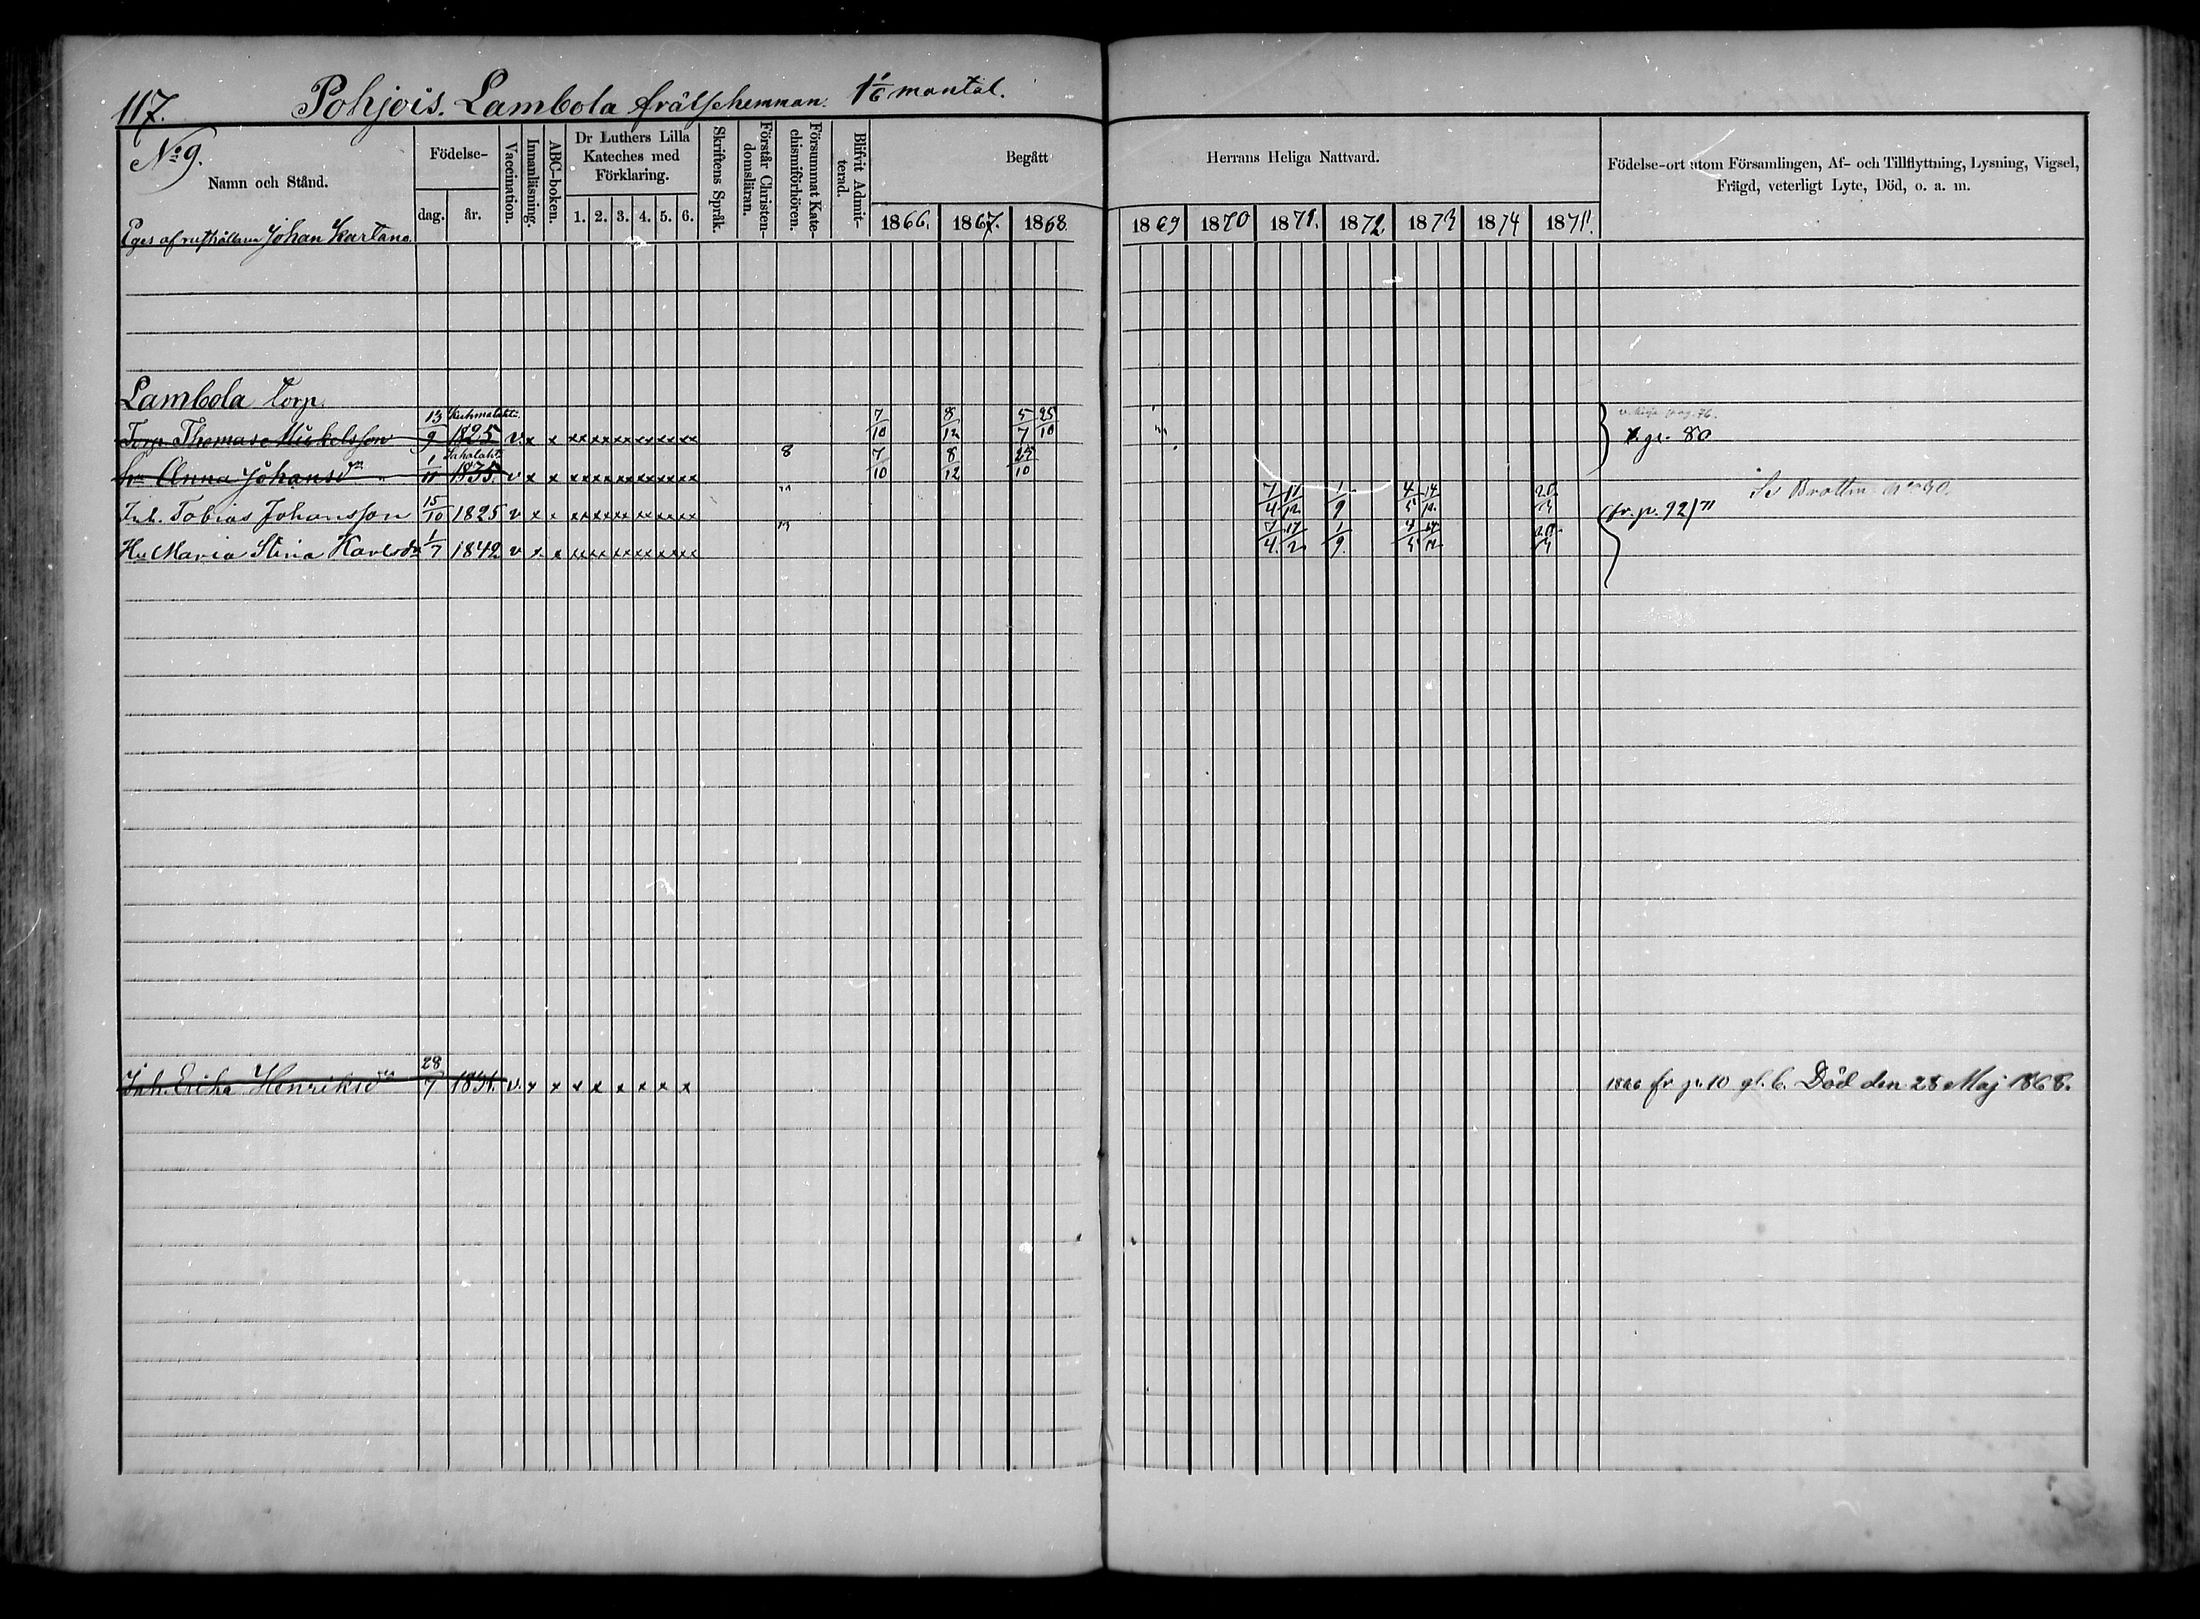 117. Pohjois. Lambola frälsehemman. 1 1/6 mantal.
No 9.
Namn och Stånd.
Födelse-
dag. år.
Vaccination.
Innanläsning.
ABC-boken.
Dr Luthers Lilla Kateches med Förklaring.
1. 2. 3. 4. 5. 6.
Skriftens Språk.
Förstår Christendomsläran.
Försummat Katechismiförhören.
Blifvit Admitterad.
Begått Herrans Heliga Nattvard.
1866. 1867. 1868. 1869 1870 1871. 1872. 1873 1874 1875.
Födelse-ort utom Församlingen, Af- och Tillflyttning, Lysning, Vigsel, Frägd, veterligt Lyte, Död, o. a. m.
Eges af rusthållaren Johan Kartano.
Lambola Torp.
Torp. Thomas Mickelsson 13/9 Kuhmalahti 1825 v. x x xx xx xx xx xx xx 7/10 8/12 5/7 25/10 p. 80
hu Anna Johansdr 1/11 Sahalahti 1835. v x x xx xx xx xx xx xx 8 7/10 8/12 25/10
Inh. Tobias Johansson 15/10 1825 v x x xx xx xx xx xx xx 1/9 fr. p. 92/71
Hu Maria Stina Karlsdr 1/7 1842 v x x xx xx xx xx xx xx 1/9
Inh. Erika Henriksdr 28/7 1831. v. x x x x x x x x 1866 fr p. 10 gl. b. Död den 28 Maj 1868.